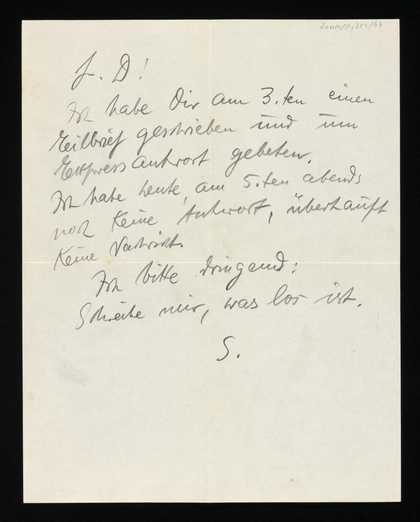 L. D!
Ich habe Dir am 3.ten einen
Eilbrief geschrieben und um
Expressantwort gebeten.
Ich habe heute, am 5.ten abends
noch keine Antwort, überhaupt
keine Nachricht.
Ich bitte dringend:
Schreibe mir, was los ist.
S.